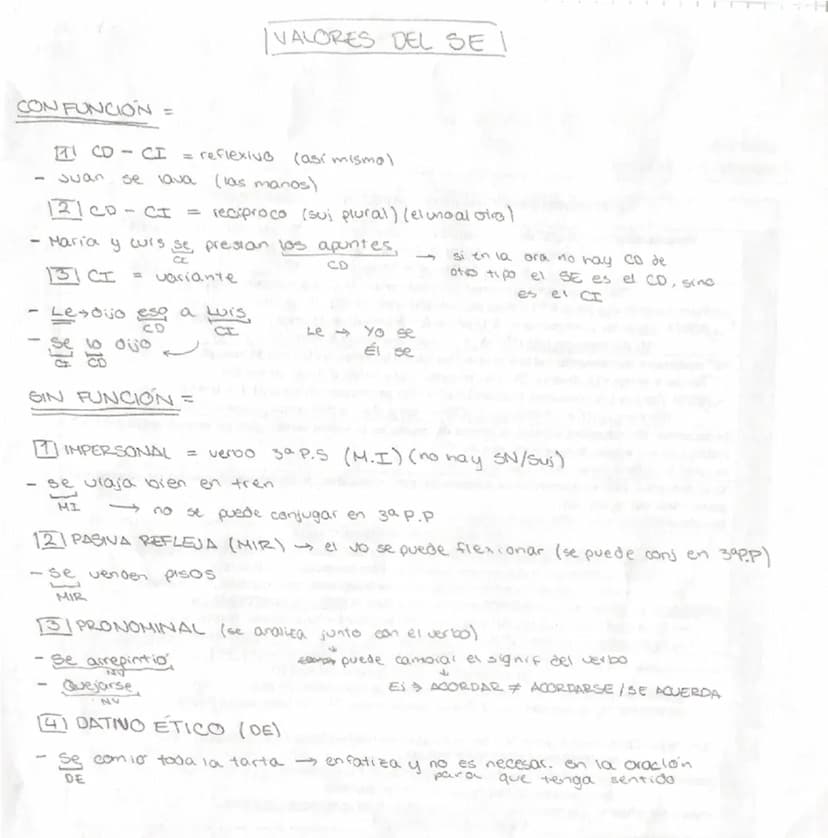 VALORES DEL SE
CON FUNCIÓN =
1 CD - CI = reflexivo (así mismo)
- Juan se lava (las manos)
2 CD - CI = recíproco (suj plural) (el uno al otro)
- María y Luis se prestan los apuntes → si en la ora no hay CD de
CI CD otro tipo el SE es el CD, sino
3 CI = variante es el CI
- Le → Dijo eso a Luis
CD CI Le → Yo se
- Se lo dijo Él se
CI CD
SIN FUNCIÓN =
1 IMPERSONAL = verbo 3ª P.S (M.I) (no hay SN/Suj)
- Se viaja bien en tren
MI → no se puede conjugar en 3ª P.P
2 PASIVA REFLEJA (MIR) → el vb se puede flexionar (se puede conj en 3ªP.P)
- Se venden pisos
MIR
3 PRONOMINAL (se analiza junto con el verbo)
- Se arrepintió puede cambiar el signif del verbo
NV
- Quejarse Ej → ACORDAR ≠ ACORDARSE / SE ACUERDA
NV
4 DATIVO ÉTICO (DE)
- Se comió toda la tarta → enfatiza y no es necesar. en la oración
DE para que tenga sentido